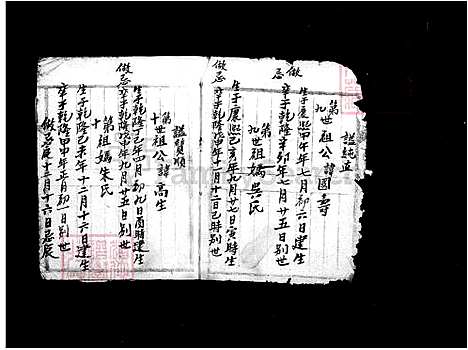 謚純直
第九世祖公諱國壽
生于康熙甲午年七月初六日建生
卒于乾隆辛卯年七月廿五日別世
做忌
第九世祖媽吳氏
生于康熙己亥年九月廿七日寅時生
卒于乾隆甲年十一月十二日巳時別世
做忌
謚賢順
第十世祖公諱高生
生于乾隆丁巳年四月初九日酉時建生
卒于乾隆甲年八月廿五日別世
做忌
第十祖媽朱氏
生于乾隆己未年十二月十六日建生
卒于乾隆甲申年正月初日別世
做忌是十二月十六日忌辰